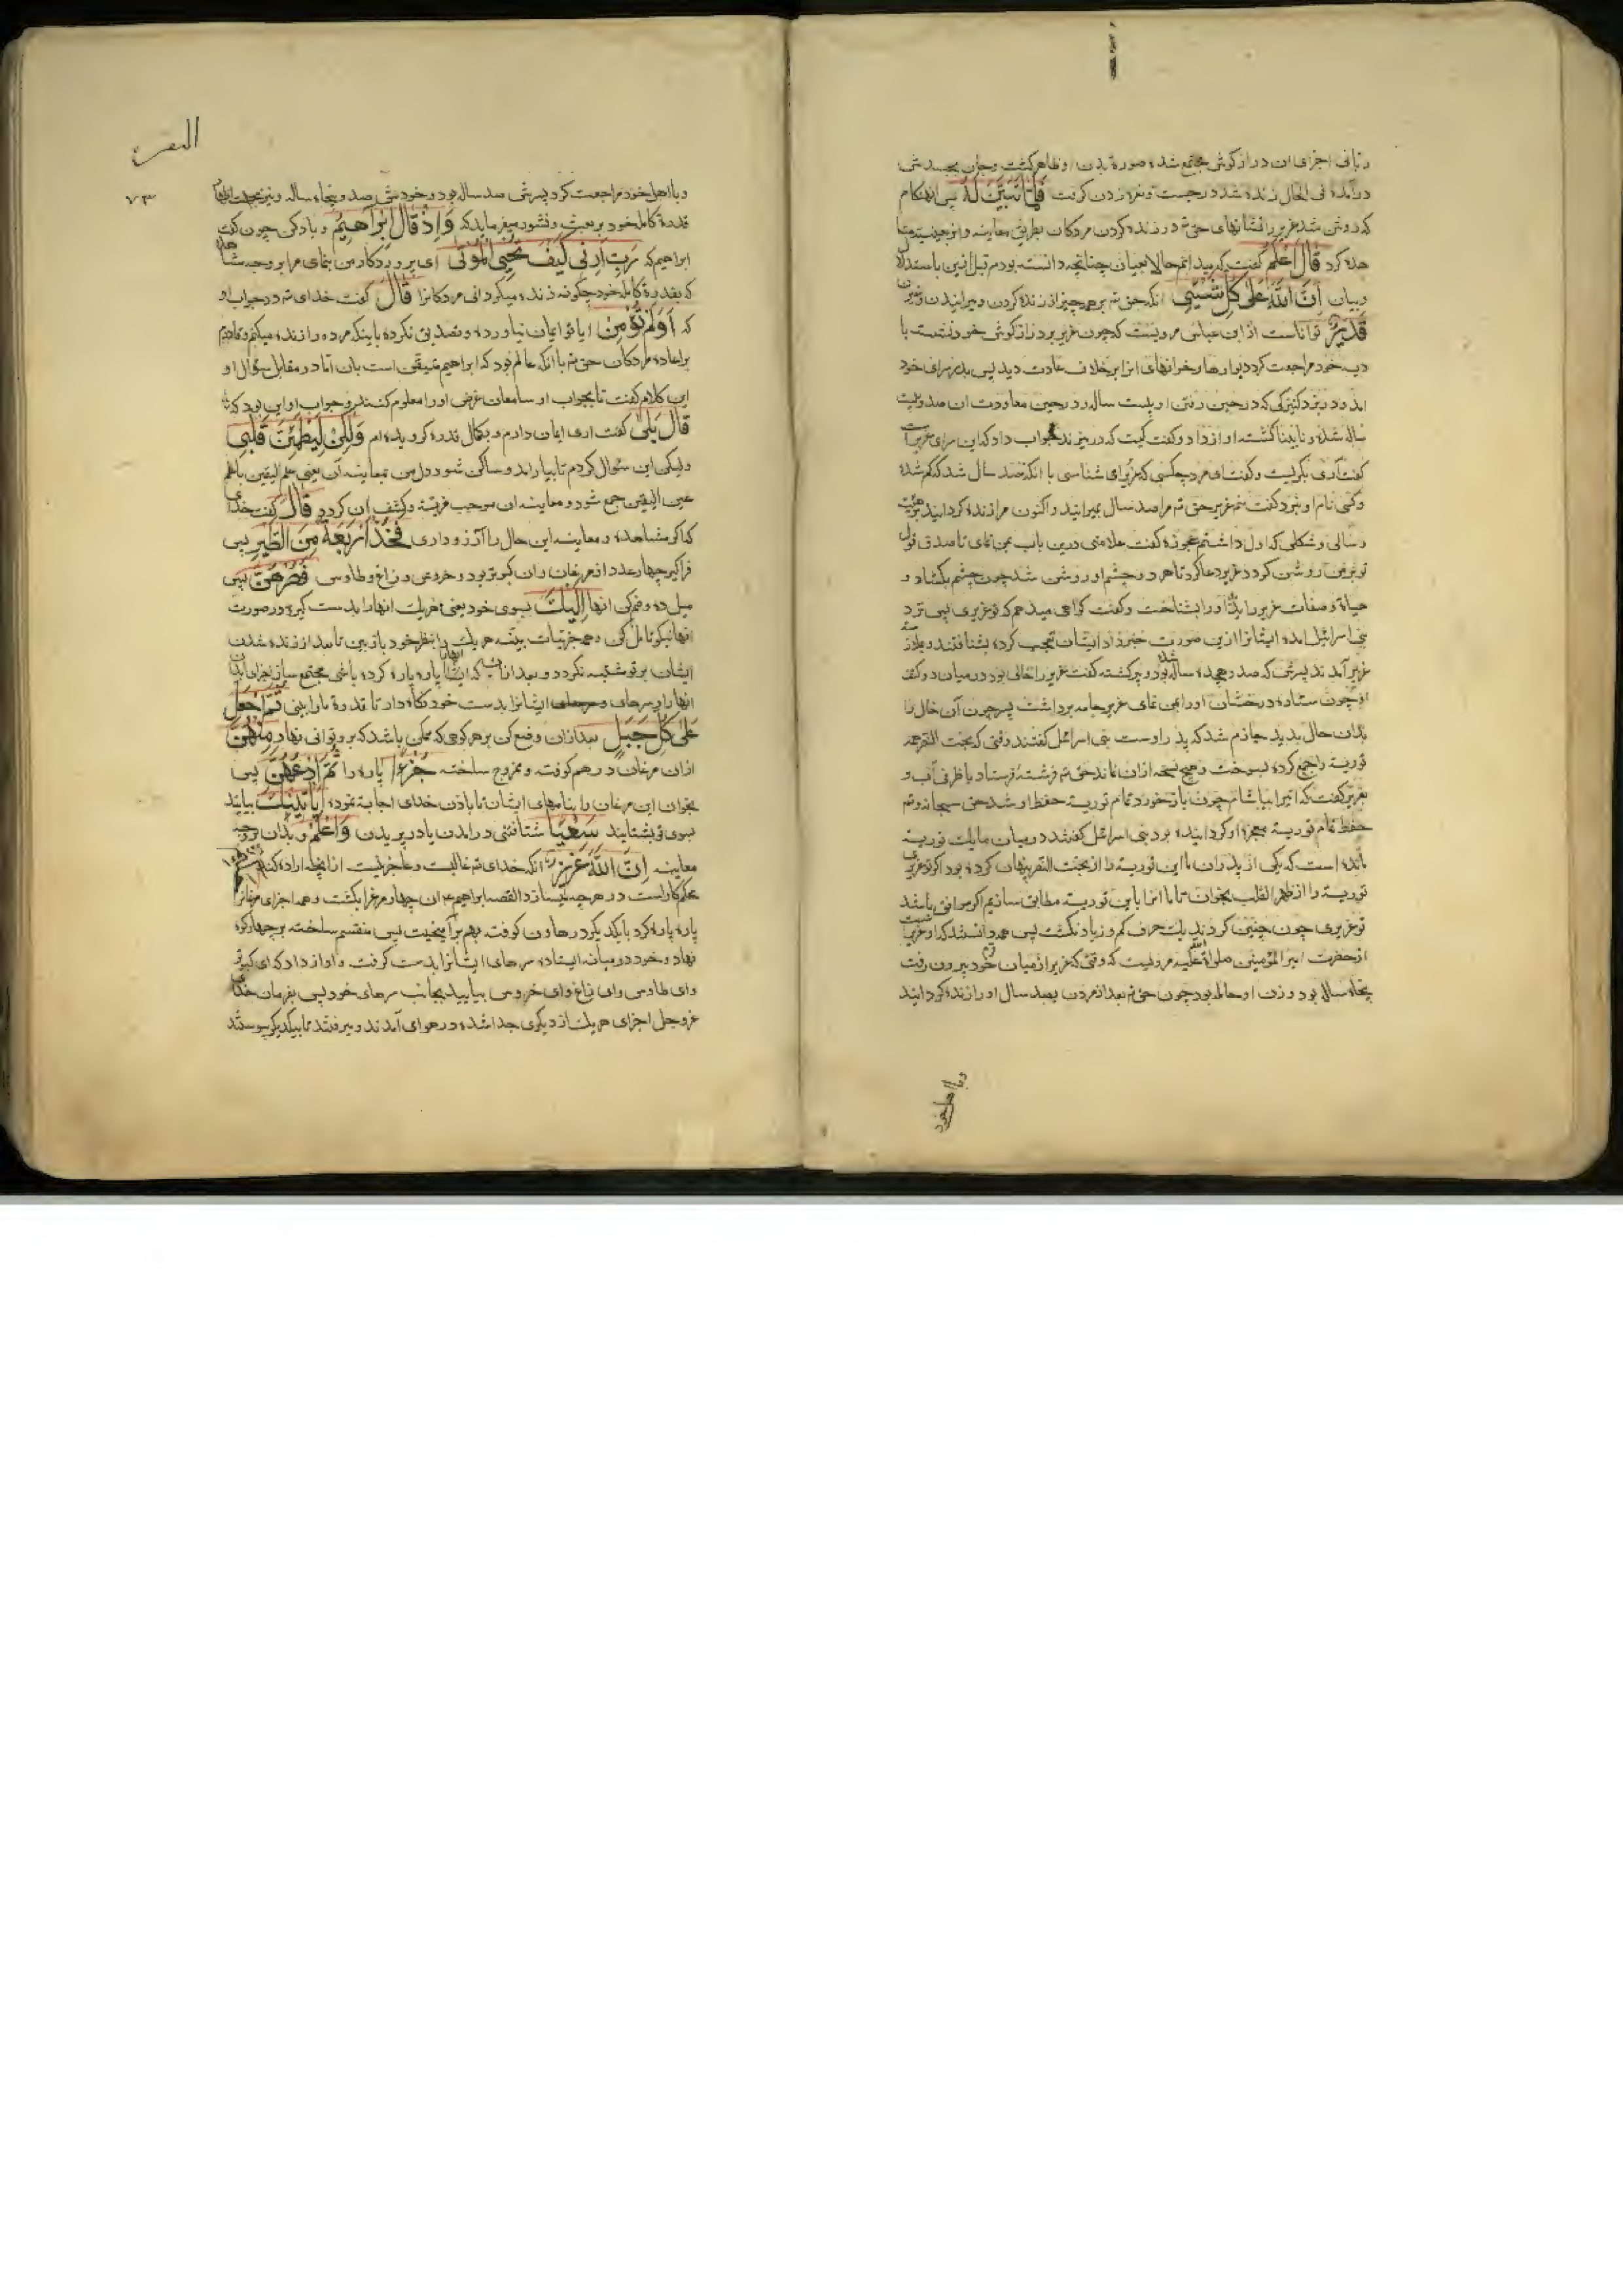 ربانی اجزای ان درازکوش مجتمع شده صورة بدن او ظاهر کشت و جان بجسدش
درآمده فی الحال زنده شد و برجست و نعره زدن کرفت فَلَمَّا تَبَيَّنَ لَهُ پس انهنکام
که روشن شد عزیر را نشانهای حق تع در زنده کردن مردکان بطریق معاینه
هده کرد قَالَ اَعْلَمُ کفت که میدانم حالا بعیان چنانچه دانسته بودم قبل ازین باستدلا
و بیان اِنَّ اللّٰهَ عَلٰی كُلِّ شَیْءٍ انکه حق تع بر همه چیز از زنده کردن و میرانیدن
قَدِيْرٌ تواناست از ابن عباس مرویست که چون عزیر بر درازکوش خود نشست با
دیه خود مراجعت کرد دیوارها و خوانهای انرا بر خلاف عادت دید پس بدر سرای خود
امد و در بزد کنیزکی که در حین رفتن او بیست ساله و در حین معاودت ان صد و بیست
ساله شده و نابینا کشته اواز داد و کفت کیست که در میزند جواب داد که این سرای عزیر است
کفت آری بکریست و کفت ای مرد چه کسی که عزیر را می شناسی با انکه صد سال شد که کم شده
و کسی نام او نبرد کفت منم عزیر حق تع مرا صد سال بمیرانید و اکنون مرا زنده کردانید بر هیئت
و سالی و شکلی که اول داشتم عجوزه کفت علامتی درین باب بمن نمای تا صدق قول
تو بر من روشن کردد عزیر دعا کرد تا هر دو چشم او روشن شد چون چشم بکشاد و
حیاة و صفات عزیر را بدید او را بشناخت و کفت کواهی میدهم که تو عزیری پس نزد
بنی اسرائیل امده ایشانرا ازین صورت خبر داد ایشان تعجب کرده بشتافتند و ملازمت
عزیر آمدند پسرش که صد و هجده ساله بود و پیر کشته کفت عزیر را خالی بود در میان دو کتف
او چون ستاره درخشان او را بمن نمای عزیر جامه برداشت پسر چون آن خال را
بدان حال بدید جازم شد که پدر اوست بنی اسرائیل کفتند وقتی که بخت النصر همه
توریة را جمع کرده بسوخت و هیچ نسخه ازان نماند حق تع فرشتۀ فرستاد با ظرفی آب و
بعزیر کفت که اینرا بیاشام چون باز خورد تمام توریة حفظ او شد حق سبحانه و تع
حفظ تمام توریة معجزه او کردانیده بود بنی اسرائیل کفتند در میان ما یک توریة
مانده است که یکی از پدران ما این توریة را از بخت النصر پنهان کرده بود اکر تو عزیری
توریة را از ظهر القلب بخوان تا ما انرا با این توریة مطابق سازیم اکر موافق باشد
تو عزیری چون چنین کردند یک حرف کم و زیاد نکشت پس همه دانستند که او عزیر است
از حضرت امیر المؤمنین صلواة الله علیه مرویست که وقتی که عزیر از میان قوم خود بیرون رفت
پنجاه ساله بود و زن او حامله بود چون حق تع بعد از مردن بصد سال او را زنده کردانید
و با اهل خود
البقره
۷۳
و با اهل خود مراجعت کرد پسرش صد ساله بود و خودش صد و پنجاه ساله و نیز بجهت
قدرة کامله خود بر بعث و نشور میفرماید که وَاِذْ قَالَ اِبْرَاهِیْمُ و یاد کن چون کفت
ابراهیم که رَبِّ اَرِنِیْ كَیْفَ تُحْیِی الْمَوْتٰی ای پروردکار من بنمای مرا بر وجه مشاهده
که بقدرة کامله خود چکونه زنده میکردانی مردکانرا قَالَ کفت خدای تع در جواب او
که اَوَلَمْ تُؤْمِنْ ایا تو ایمان نیاورده و تصدیق نکرده باینکه مرده را زنده میکنم و قادرم
بر اعاده مردکان حق تع با انکه عالم بود که ابراهیم متیقن است بان اما در مقابل سؤال او
این کلام کفت تا بجواب او سامعان غرض او را معلوم کنند و جواب او این بود که
قَالَ بَلٰی کفت اری ایمان دارم و بکمال قدرة کرویده ام وَلٰكِنْ لِیَطْمَئِنَّ قَلْبِیْ
ولیکن این سؤال کردم تا بیارامد و ساکن شود دل من بمعاینه آن یعنی علم الیقین با علم
عین الیقین جمع شود و معاینه ان موجب مزیة و کشف ان کردد قَالَ کفت خدای
که اکر مشاهده و معاینه این حال را آرزو داری فَخُذْ اَرْبَعَةً مِنَ الطَّیْرِ پس
فراکیر چهار عدد از مرغان و ان کبوتر بود و خروس و زاغ و طاوس فَصُرْهُنَّ پس
میل ده و ضم کن انها اِلَیْكَ بسوی خود یعنی هر یک انها را بدست کیر و در صورت
انها نیکو تامل کن و همه جزئیات بدن هر یک را بنظر خود باز بین تا بعد از زنده شدن
ایشان بر تو مشتبه نکردد و بعد ازان که ایشانرا پاره پاره کرده باشی مجتمع ساز اجزای بدن
انها را و سرهای ایشانرا بدست خود نکاه دار تا قدرة ما را بینی ثُمَّ اجْعَلْ
عَلٰی كُلِّ جَبَلٍ بعد ازان وضع کن بر هر کوهی که ممکن باشد که برو توانی نهاد مِنْهُنَّ
ازان مرغان در هم کوفته و ممزوج ساخته جُزْءًا پاره را ثُمَّ ادْعُهُنَّ پس
بخوان این مرغان را بنامهای ایشان تا باذن خدای اجابة نموده یَاْتِیْنَكَ بیایند
بسوی تو بشتابند سَعْیًا شتافتنی در امدن یا در پریدن وَاعْلَمْ و بدان
معاینه اِنَّ اللّٰهَ عَزِیْزٌ انکه خدای تع غالبست و عاجز نیست از انچه اراده کند حَكِیْمٌ
محکم کار است در هر چه میسازد القصه ابراهیم ع ان چهار مرغ را بکشت و همه اجزای مرغانرا
پاره پاره کرد با یکدیکر در هاون کوفته بهم برآمیخت پس منقسم ساخته بر چهار کوه
نهاد و خود در میانه ایستاده سرهای ایشانرا بدست کرفت و اواز داد که ای کبوتر
و ای طاوس و ای زاغ و ای خروس بیایید بجانب سرهای خود پس بفرمان خدای
عز و جل اجزای هر یک از دیکری جدا شده در هوای آمدند و میرفتند تا بیکدیکر پیوستند